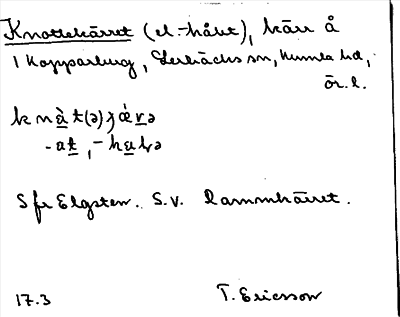 Knottekärret (el. -hålet), kärr å
1 Kopparberg, Lerbäcks sn, Kumla hd,
Ör. l.
S fr Elgsten. S.V. Dammkärret.
17.3 T. Ericsson